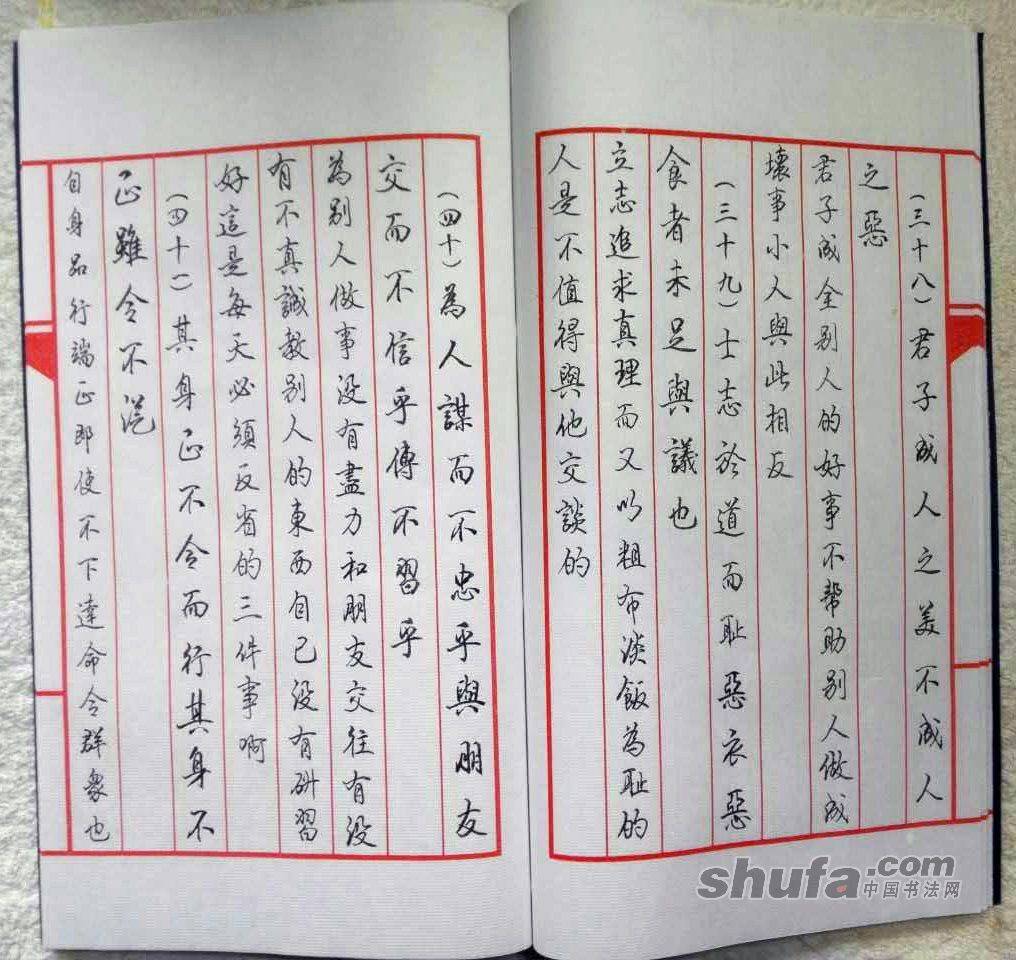 (三十八)君子成人之美不成人
之惡
君子成全别人的好事不帮助别人做成
壞事小人與此相反
(三十九)士志於道而耻惡衣惡
食者未足與議也
立志追求真理而又以粗布淡飯為耻的
人是不值得與他交談的
(四十)為人謀而不忠乎與朋友
交而不信乎傳不習乎
為别人做事没有盡力和朋友交往有没
有不真誠教别人的東西自己没有研習
好這是每天必須反省的三件事啊
(四十一)其身正不令而行其身不
正雖令不從
自身品行端正即使不下達命令群衆也
shufa.com
中国书法网